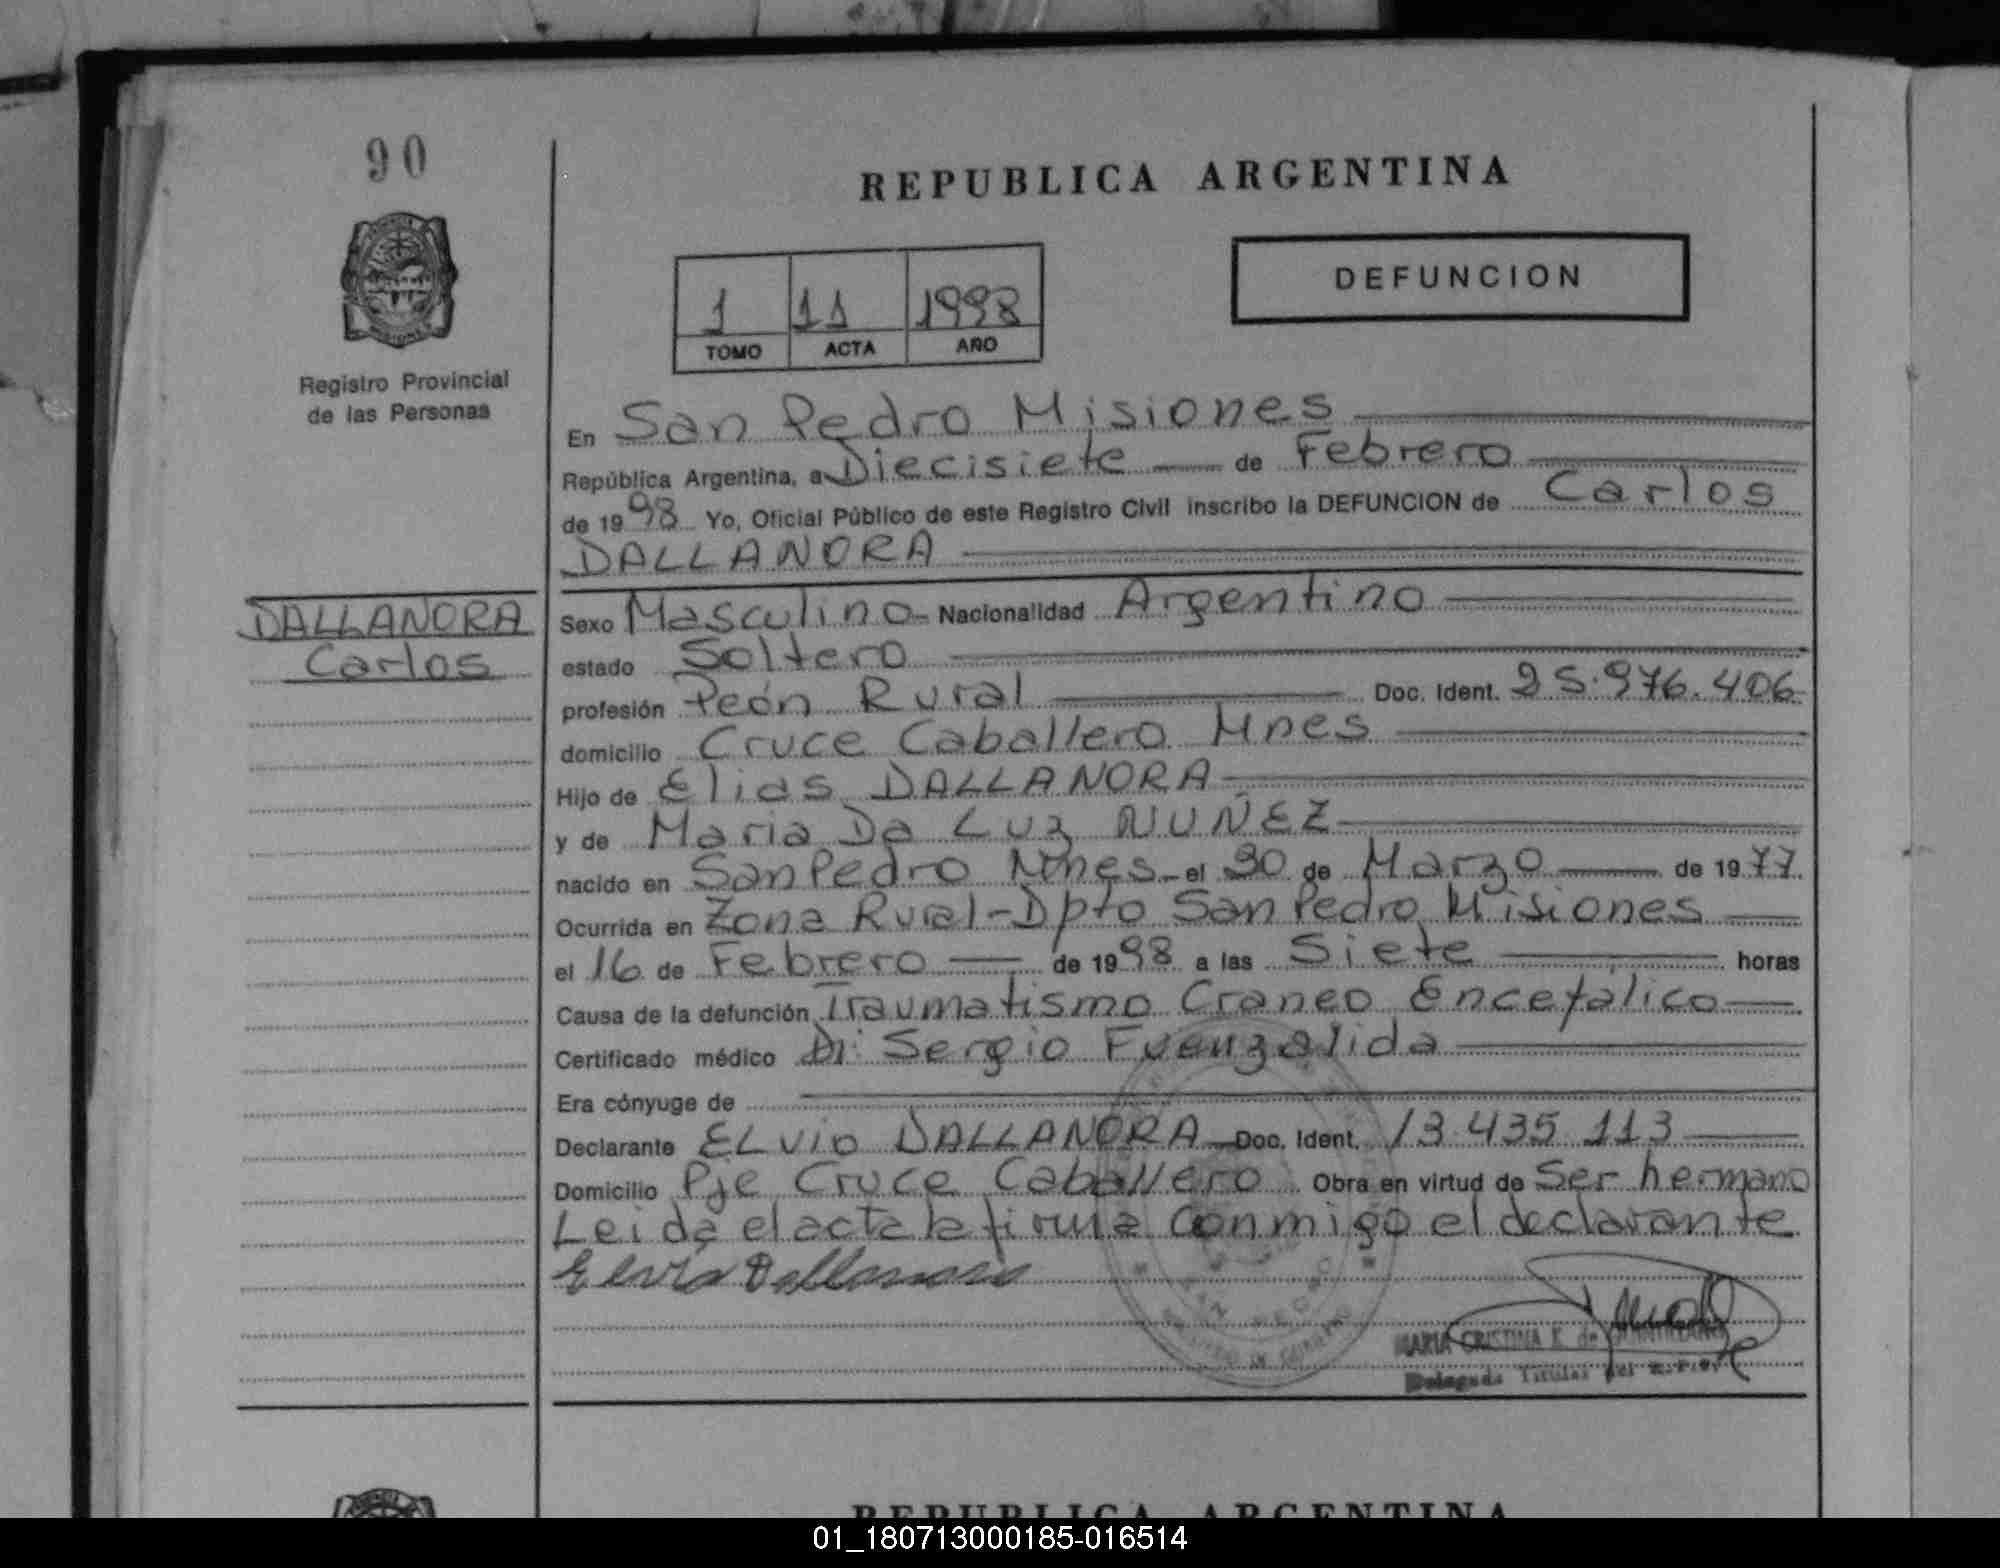 90
REPUBLICA ARGENTINA
DEFUNCION
1 11 1998
TOMO ACTA AÑO
Registro Provincial
de las Personas
En San Pedro Misiones
República Argentina, a Diecisiete de Febrero
de 1998 Yo, Oficial Público de este Registro Civil inscribo la DEFUNCION de Carlos
DALLANORA
DALLANORA
Carlos
Sexo Masculino Nacionalidad Argentino
estado Soltero
profesión Peón Rural Doc. Ident. 25.976.406
domicilio Cruce Caballero Mnes
Hijo de Elias DALLANORA
y de Maria Da Luz NUÑEZ
nacido en San Pedro Mnes el 30 de Marzo de 1977
Ocurrida en Zona Rural-Dpto San Pedro Misiones
el 16 de Febrero de 1998 a las Siete horas
Causa de la defunción Traumatismo Craneo Encefalico
Certificado médico Dr. Sergio Fuenzalida
Era cónyuge de
Declarante ELVIO DALLANORA Doc. Ident. 13.435.113
Domicilio Pje Cruce Caballero Obra en virtud de Ser hermano
Leida el acta la firma conmigo el declarante
Elvio Dallanora
SAN PEDRO
MARIA CRISTINA K. de
Delegada Titular del R.P.P.
REPUBLICA ARGENTINA
01_180713000185-016514